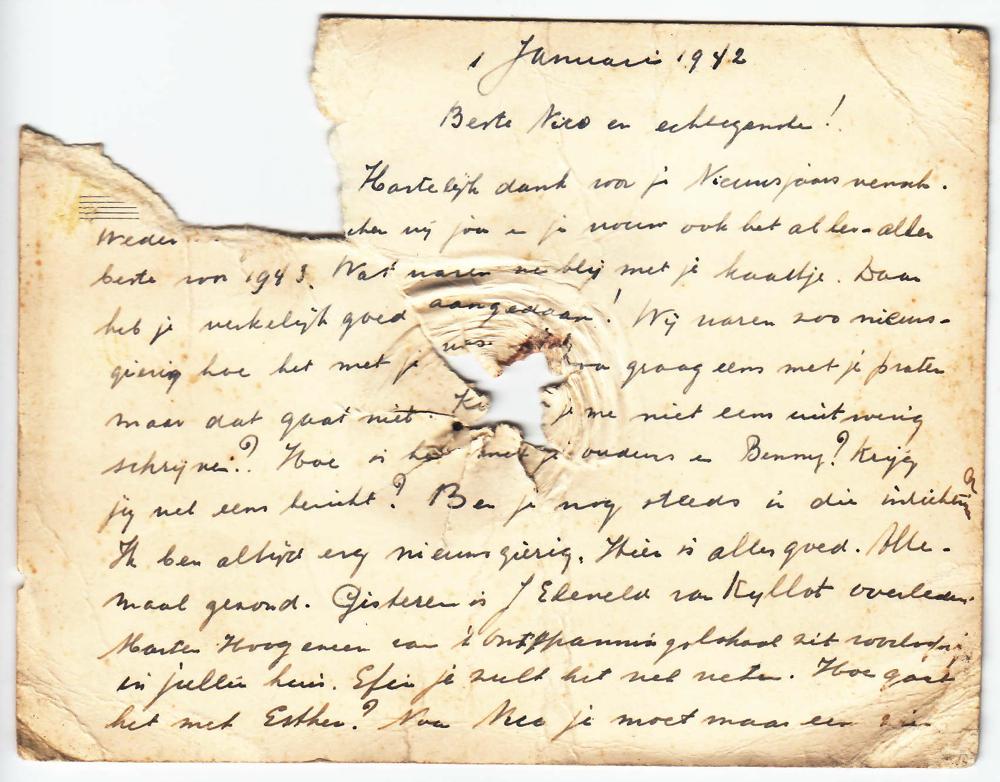 1 Januari 1942
Beste Nico en echtegenote!
Hartelijk dank voor je Nieuwsjaars wensch.
Weder wij jou en je vrouw ook het aller-aller
beste voor 1943. Wat waren we blij met je kaartje. Daar
heb je werkelijk goed aangedaan! Wij waren zoo nieuws-
gierig hoe het met je was. graag eens met je praten
maar dat gaat niet. je me niet eens uitvoerig
schrijven? Hoe is het met je ouders en Benny? Krijg
jij wel eens bericht? Ben je nog steeds in die inrichting
Ik ben altijd erg nieuwsgierig. Hier is alles goed. Alle-
maal gezond. Gisteren is J Eleveld van Kyllot overleden.
Marten Hoogeveen van 't ontspanningslokaal zit voorloopig
in jullie huis. Efin je zult het wel weten. Hoe gaat
het met Esther? Nou Nico je moet maar een